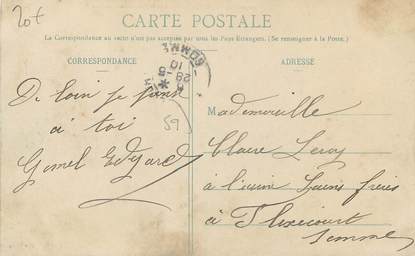 20t
CARTE POSTALE
La Correspondance au recto n'est pas acceptée par tous les Pays Étrangers. (Se renseigner à la Poste.)
CORRESPONDANCE
ADRESSE
SOMME
De loin je pense
a toi
Gomel Edgard
59
Mademoiselle
Claire Leroy
à l'usine Saint frères
à Flixecourt
Somme